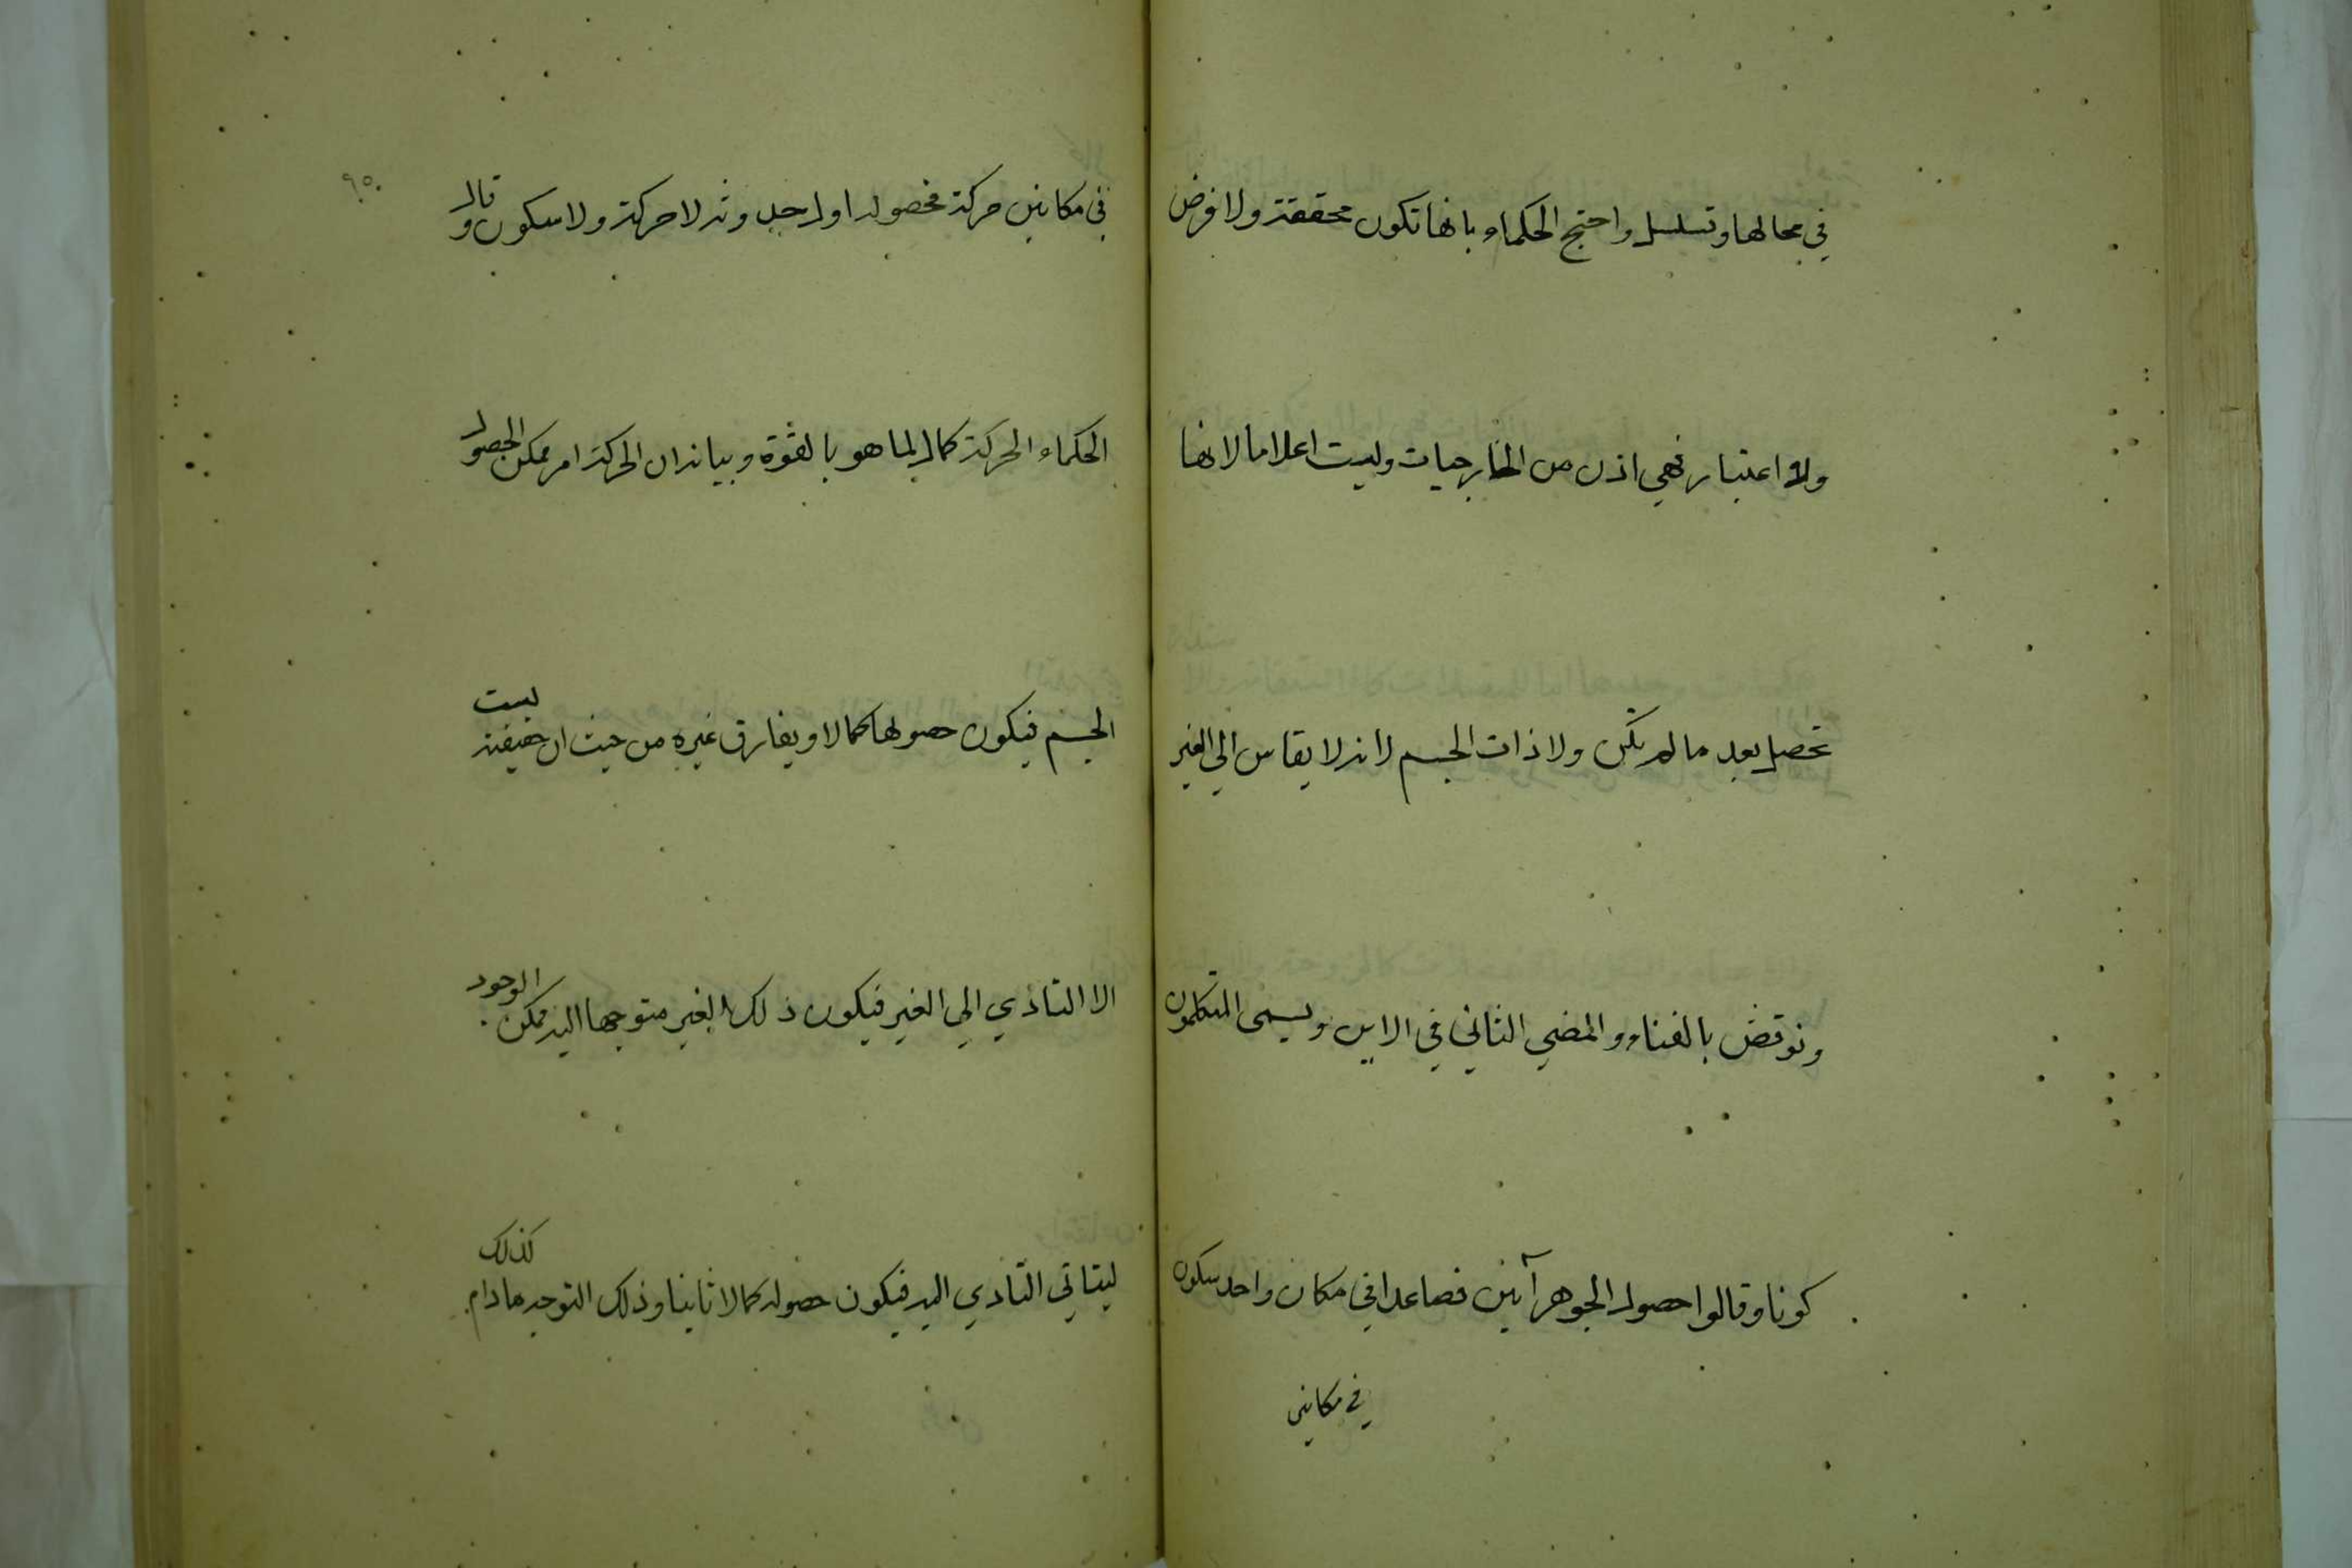 في محالها وتسلسل واحتج الحكماء بانها تكون محققة ولا فرض
ولا اعتبار فهي اذن من الخارجيات وليست اعلاما لانها
تحصل بعد ما لم تكن ولا ذات الجسم لانه لا يقاس الي الغير
ونوقض بالفناء والمضي الثاني في الاين ويسمى المتكلمون
كونا وقالوا حصول الجوهر آنين فصاعدا في مكان واحد سكون
في مكانين
٩٥
في مكانين حركة فحصوله اول حدوثه لا حركة ولا سكون وقال
الحكماء الحركة كمال لما هو بالقوة وبيانه ان الحركة امر ممكن الحصول
الجسم فيكون حصولها كمالا ويفارق غيره من حيث ان حقيقته ليست
الا التادي الي الغير فيكون ذلك الغير متوجها اليه ممكن الوجود
ليتاتي التادي اليه فيكون حصوله كمالا ثانيا وذلك التوجه مادام كذلك